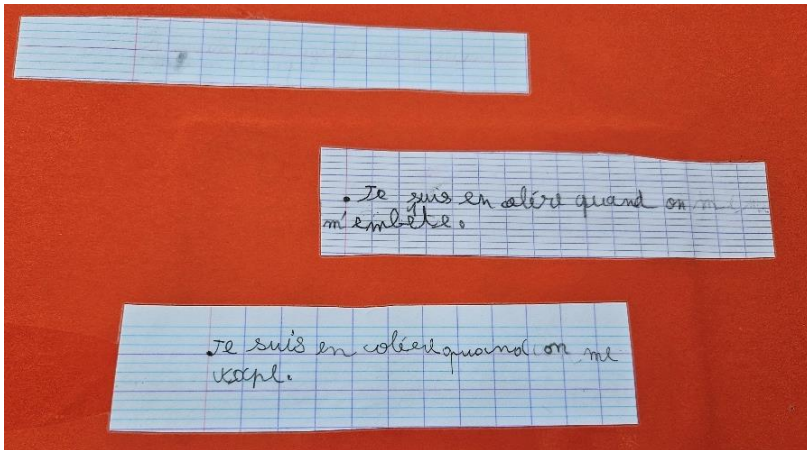 . Je suis en colère quand on m
m'embête.
Je suis en colère quand on me